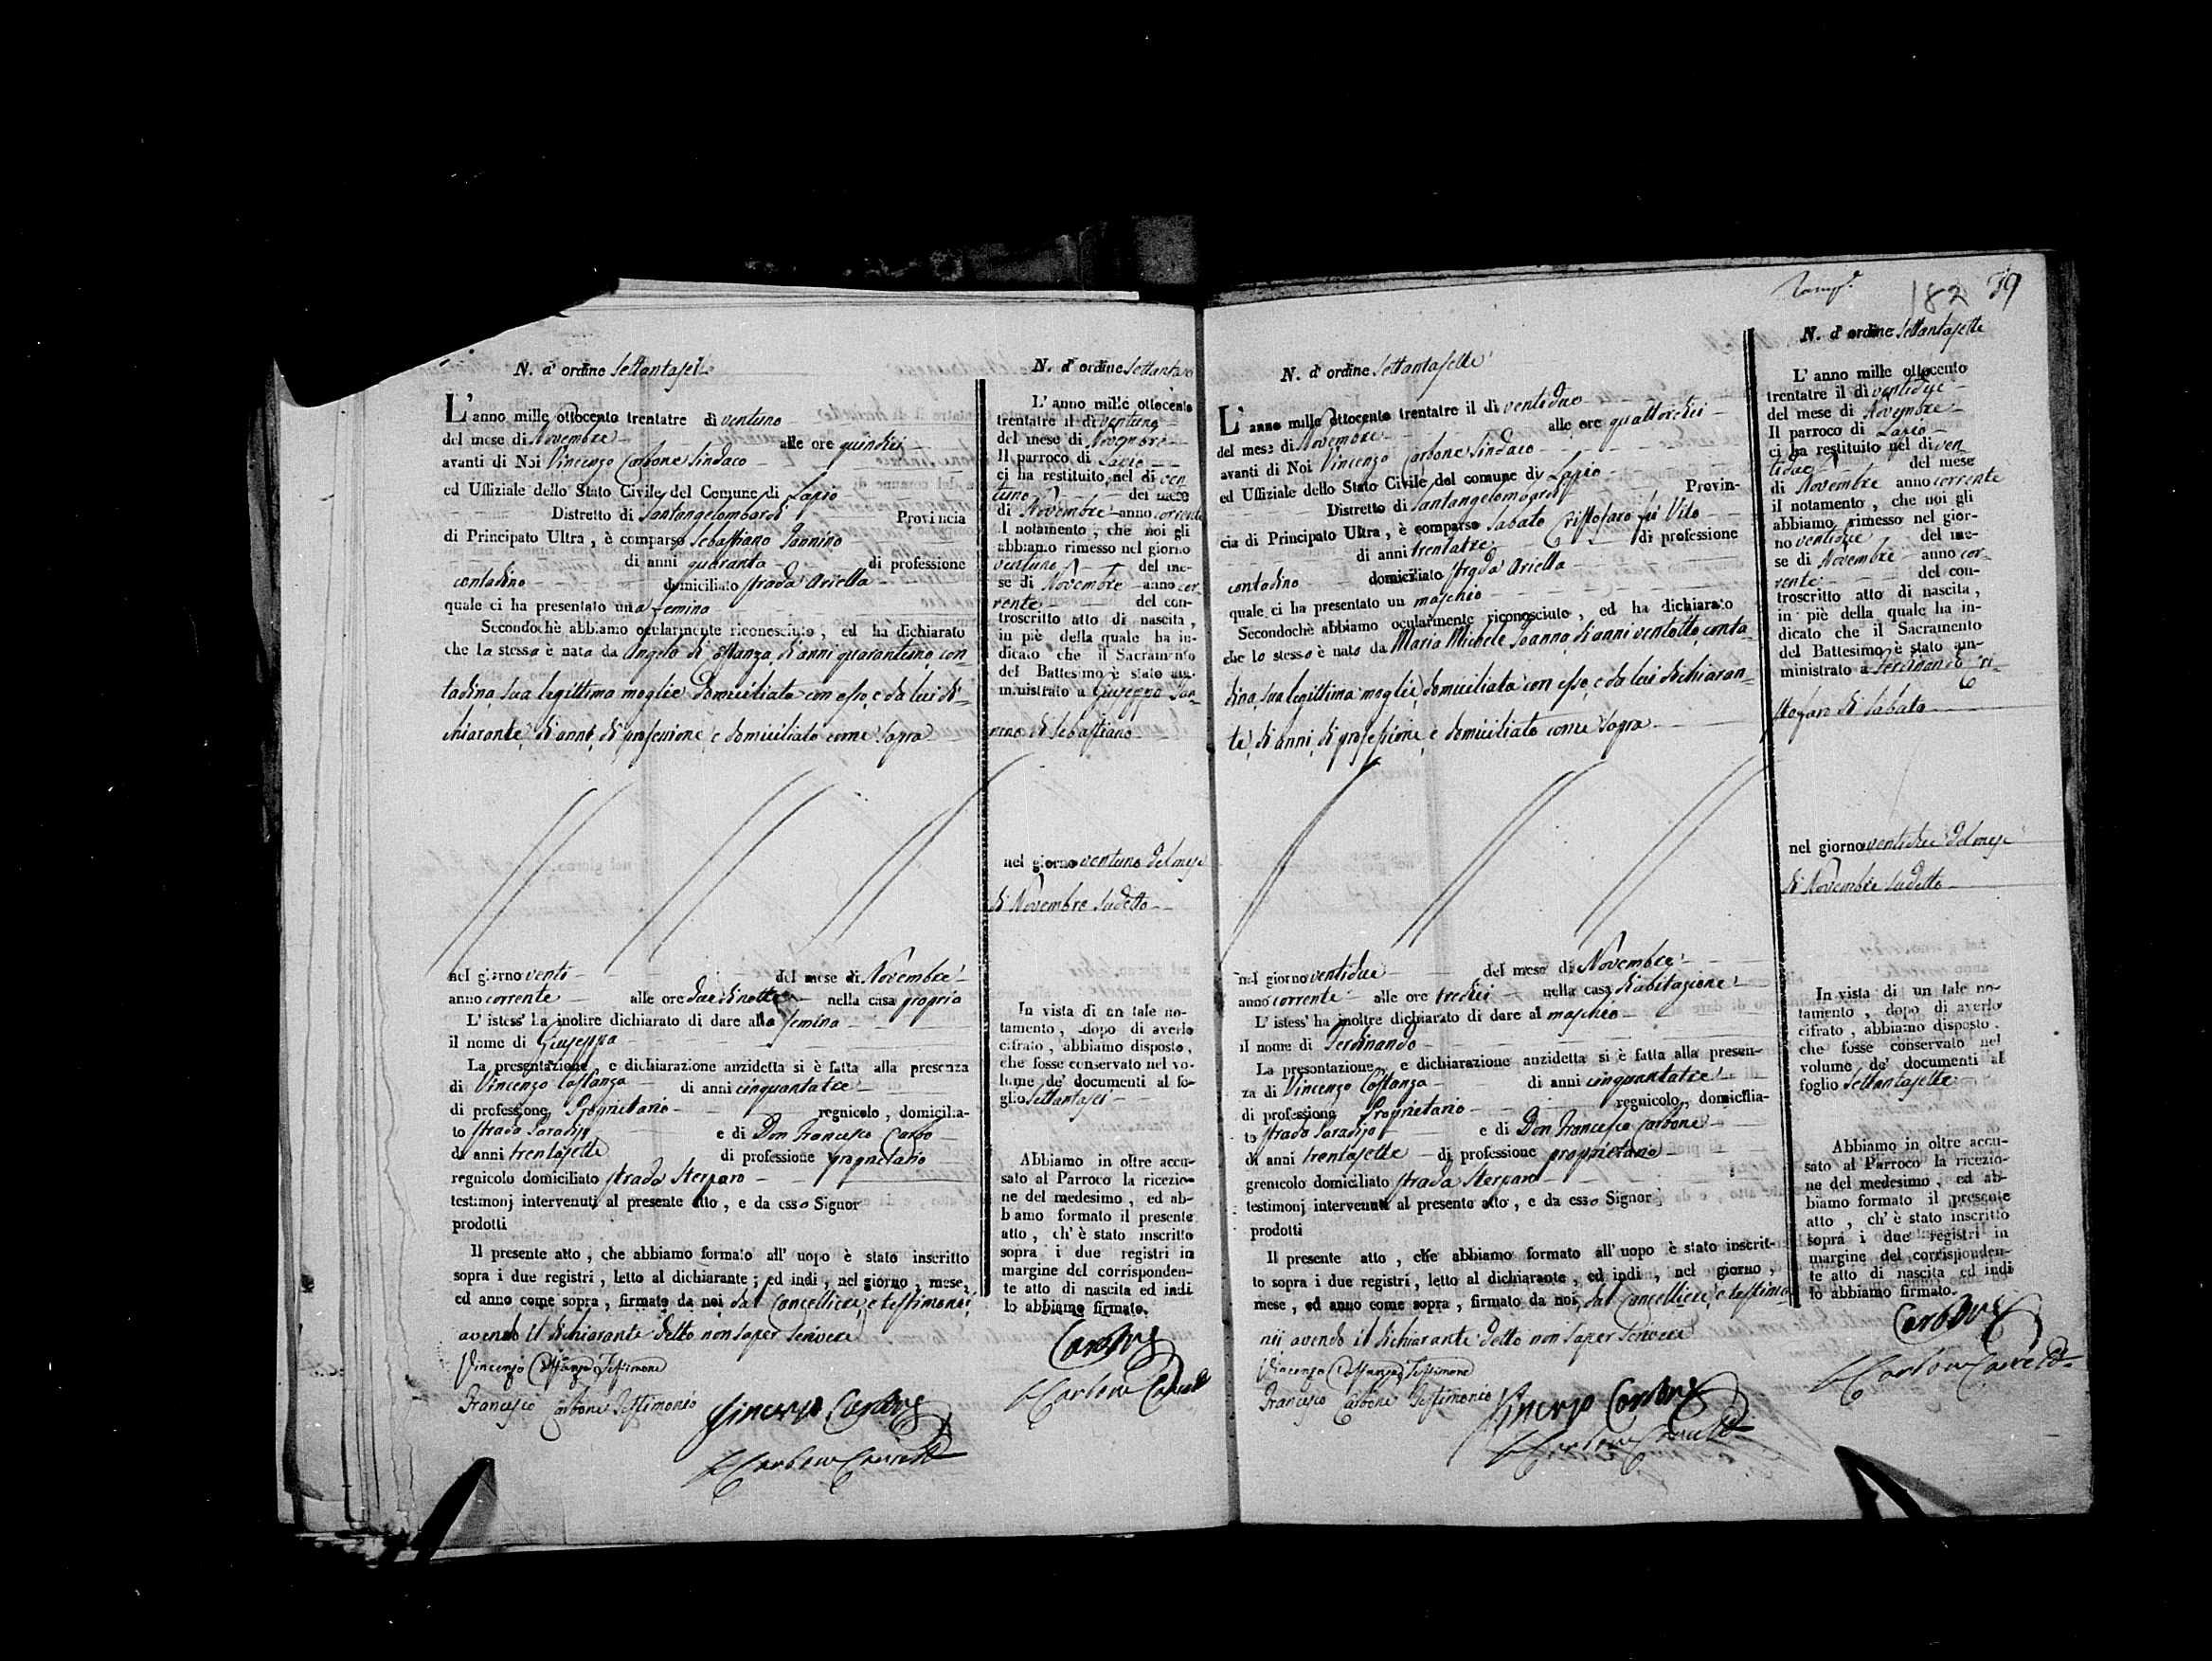 N. d' ordine Settantasei
L' anno mille ottocento trentatre di ventuno
del mese di Novembre alle ore quindici
avanti di Noi Vincenzo Carbone Sindaco
ed Uffiziale dello Stato Civile del Comune di Lapio
Distretto di Santangelombardi Provincia
di Principato Ultra, è comparso Sebastiano Iannino
di anni quaranta di professione
contadino domiciliato strada Ariella
quale ci ha presentato una femina
Secondochè abbiamo ocularmente riconosciuto, ed ha dichiarato
che la stessa è nata da Angela di Costanza, di anni quarantuno, con-
tadina, sua legittima moglie domiciliata con esso, e da lui di-
chiarante, di anni, di professione, e domiciliato come sopra
nel giorno venti del mese di Novembre
anno corrente alle ore due di notte nella casa propria
L' istess' ha inoltre dichiarato di dare alla femina
il nome di Giuseppa
La presentazione, e dichiarazione anzidetta si è fatta alla presenza
di Vincenzo Costanza di anni cinquantatre
di professione Proprietario regnicolo, domicilia-
to strada Paradiso e di Don Francesco Carbo
di anni trentasette di professione proprietario
regnicolo domiciliato strada Sterparo
testimonj intervenuti al presente atto, e da esso Signor
prodotti
Il presente atto, che abbiamo formato all' uopo è stato inscritto
sopra i due registri, letto al dichiarante; ed indi, nel giorno, mese,
ed anno come sopra, firmato da noi, dal Cancelliere, e testimonii
avendo il dichiarante detto non saper scrivere
Vincenzo Costanza Testimone
Francesco Carbone Testimonio
Vincenzo Carbone
Carbone
N. d' ordine Settantasei
L' anno mille ottocento
trentatre il di ventuno
del mese di Novembre
Il parroco di Lapio
ci ha restituito, nel di ven
tuno del mese
di Novembre anno corrente
l notamento, che noi gli
abbiamo rimesso nel giorno
ventuno del me-
se di Novembre anno cor-
rente del con-
troscritto atto di nascita,
in piè della quale ha in-
dicato che il Sacramento
del Battesimo è stato am-
ministrato a Giuseppa Ian-
nino di Sebastiano
nel giorno ventuno del mese
di Novembre sudetto
In vista di un tale no-
tamento, dopo di averlo
cifrato, abbiamo disposto,
che fosse conservato nel vo-
lume de' documenti al fo-
glio Settantasei
Abbiamo in oltre accu-
sato al Parroco la ricezio-
ne del medesimo, ed ab-
biamo formato il presente
atto, ch' è stato inscritto
sopra i due registri in
margine del corrisponden-
te atto di nascita ed indi
lo abbiamo firmato.
Carbone
Carbone
182 79
N. d' ordine Settantasette
L' anno mille ottocento trentatre il di ventidue
del mese di Novembre alle ore quattordici
avanti di Noi Vincenzo Carbone Sindaco
ed Uffiziale dello Stato Civile del comune di Lapio
Distretto di Santangelombardi Provin-
cia di Principato Ultra, è comparso Sabato Cristofaro fu Vito
di anni trentatre di professione
contadino domiciliato strada Ariella
quale ci ha presentato un maschio
Secondochè abbiamo ocularmente riconosciuto, ed ha dichiarato
che lo stesso è nato da Maria Michele Ioanna, di anni ventotto, conta-
dina, sua legittima moglie, domiciliata con esso, e da lui dichiaran-
te, di anni, di professione, e domiciliato come sopra
nel giorno ventidue del mese di Novembre
anno corrente alle ore tredici nella casa d'abitazione
L' istess' ha inoltre dichiarato di dare al maschio
il nome di Ferdinando
La presentazione, e dichiarazione anzidetta si è fatta alla presen-
za di Vincenzo Costanza di anni cinquantatre
di professione Proprietario regnicolo, domicilia-
to strada Paradiso e di Don Francesco Carbone
di anni trentasette di professione proprietario
grenicolo domiciliato strada Sterparo
testimonj intervenuti al presente atto, e da esso Signor
prodotti
Il presente atto, che abbiamo formato all' uopo è stato inscrit-
to sopra i due registri, letto al dichiarante, ed indi, nel giorno,
mese, ed anno come sopra, firmato da noi, dal Cancelliere, e testimo
nii avendo il dichiarante detto non saper scrivere
Vincenzo Costanza Testimone
Francesco Carbone Testimonio
Vincenzo Carbone
Carbone
N. d' ordine Settantasette
L' anno mille ottocento
trentatre il di ventidue
del mese di Novembre
Il parroco di Lapio
ci ha restituito nel di ven
tidue del mese
di Novembre anno corrente
il notamento, che noi gli
abbiamo rimesso nel gior-
no ventidue del me-
se di Novembre anno cor-
rente del con-
troscritto atto di nascita,
in piè della quale ha in-
dicato che il Sacramento
del Battesimo è stato am-
ministrato a Ferdinando Cri-
stofaro di Sabato
nel giorno ventidue del mese
di Novembre sudetto
In vista di un tale no-
tamento, dopo di averlo
cifrato, abbiamo disposto.
che fosse conservato nel
volume de' documenti al
foglio Settantasette
Abbiamo in oltre accu-
sato al Parroco la ricezio-
ne del medesimo, ed ab-
biamo formato il presente
atto, ch' è stato inscritto
sopra i due registri in
margine del corrisponden-
te atto di nascita ed indi
lo abbiamo firmato.
Carbone
Carbone